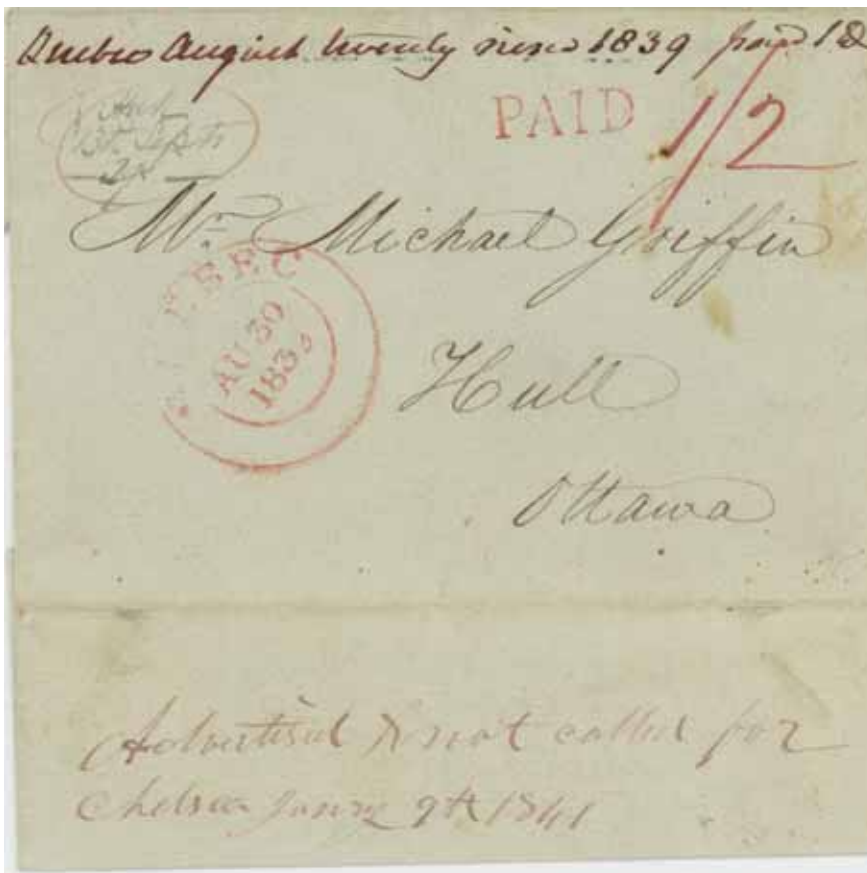 Quebec August twenty nine 1839 paid 1
PAID 1/2
13th Sept
Mr Michael Griffin
QUEBEC
AU 30
183
Hull
Ottawa
Advertised & not called for
Chelsea 9th 1841